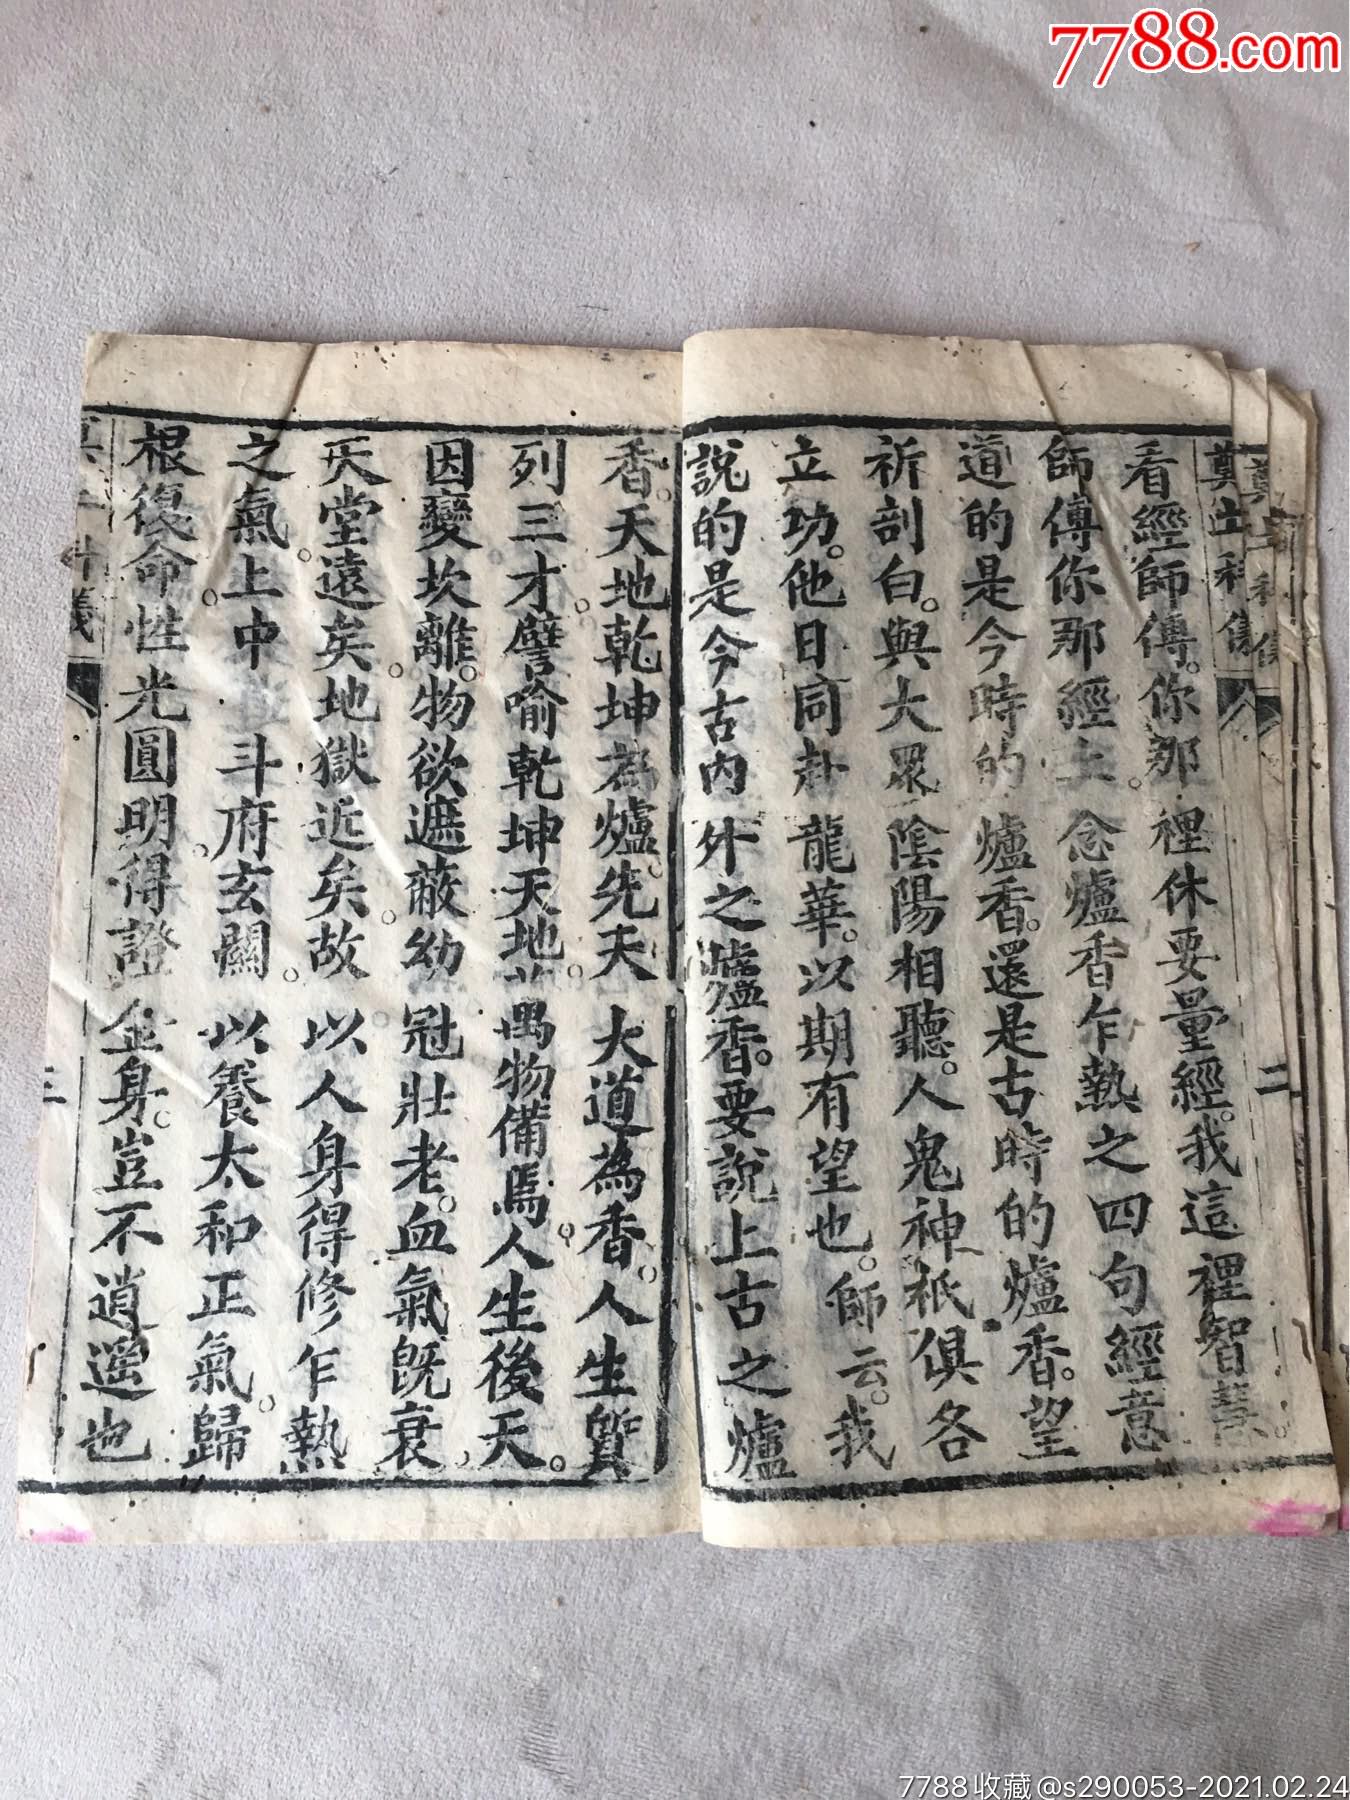 7788.com
奠土科儀
二
看經師傅。你那裡休要量經。我這裡智慧。
師傅你那經上。念爐香乍熱之四句經意
道的是今時的爐香。還是古時的爐香。望
祈剖白。與大眾陰陽相聽。人鬼神祇俱各
立功。他日同赴龍華。以期有望也。師云。我
說的是今古內外之爐香。要說上古之爐
香。天地乾坤為爐。先天大道為香。人生質
列三才。譬喻乾坤天地萬物備焉。人生後天。
因變坎離。物欲遮蔽幼冠壯老。血氣既衰
天堂遠矣。地獄近矣。故以人身得修乍熱
之氣。上中斗府玄關。以養太和正氣。歸
根復命。性光圓明。得證金身。豈不逍遥也
三
7788收藏@s290053-2021.02.24